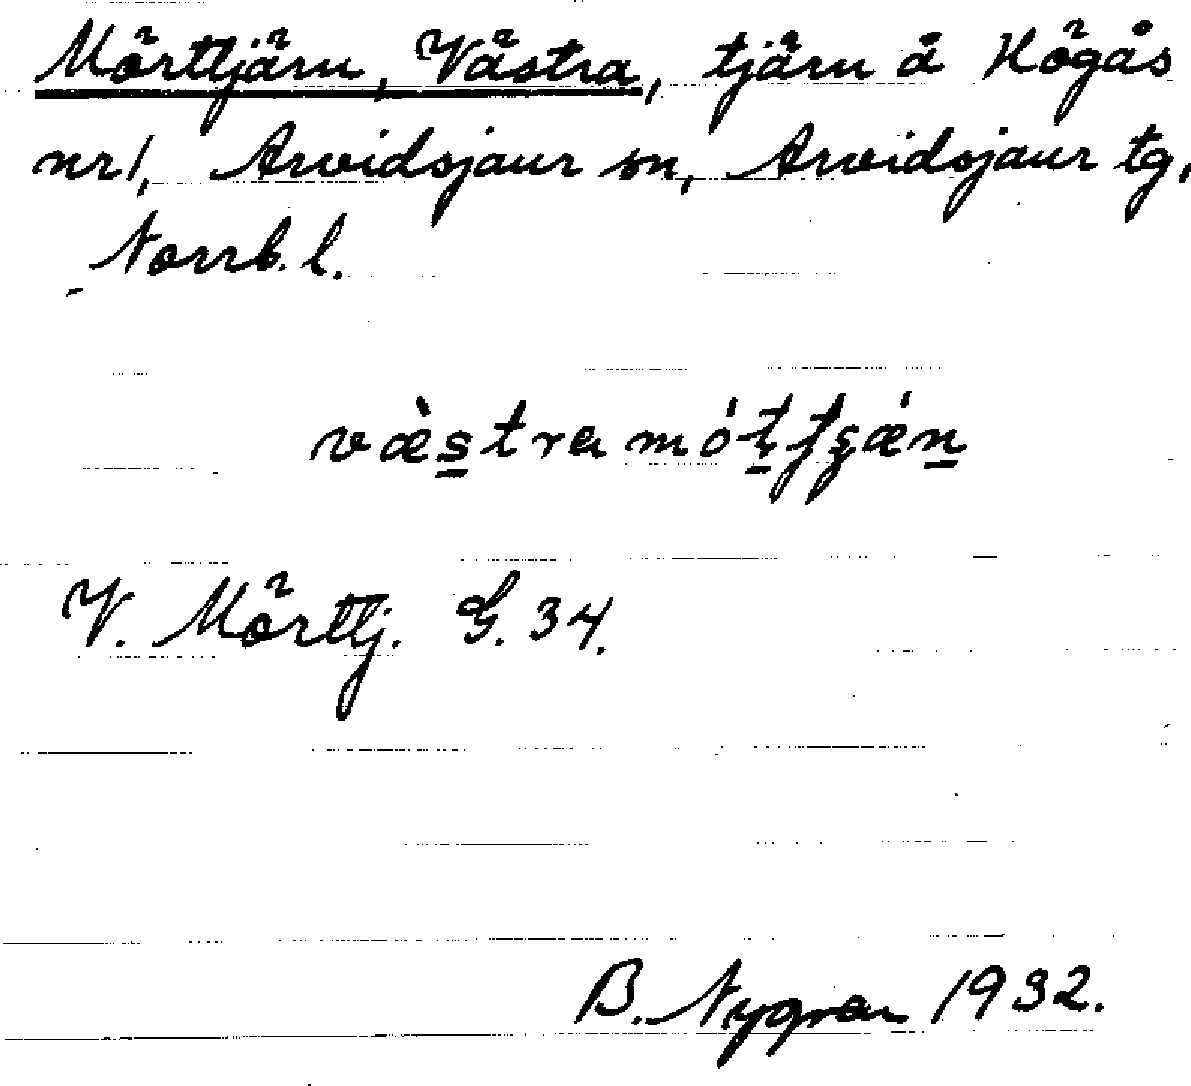 Mörttjärn, Västra, tjärn å Högås
nr 1, Arvidsjaur sn, Arvidsjaur tg,
Norrb. l.
V. Mörttj. G. 34.
B. Nygren 1932.